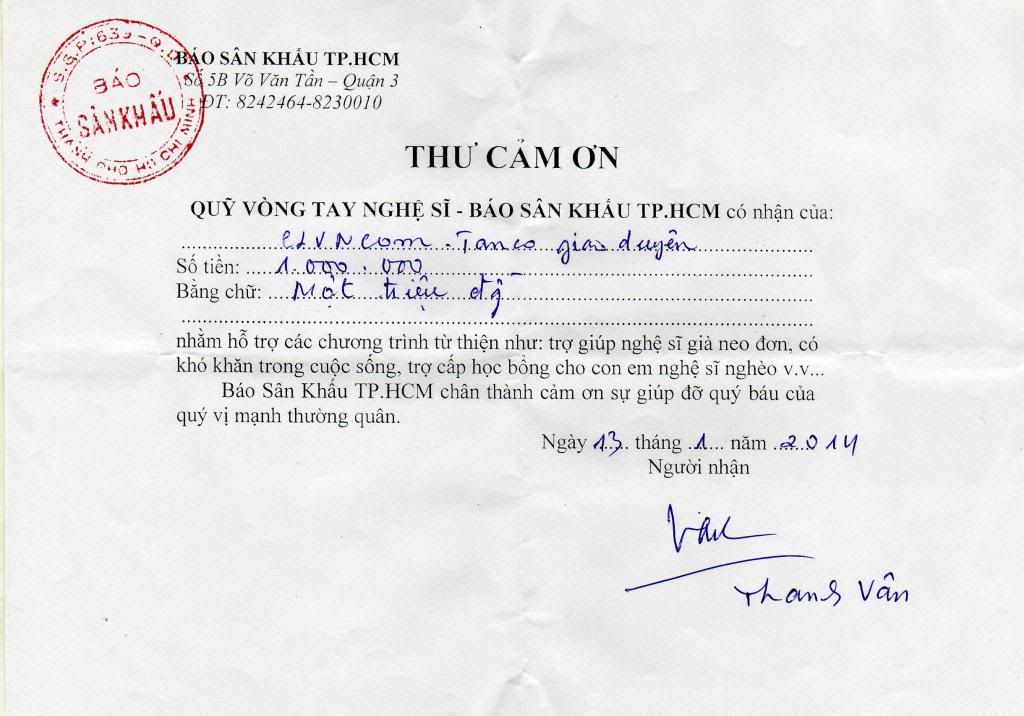 S.G.P: 639 - Q.Đ
BÁO
SÂN KHẤU
THÀNH PHỐ HỒ CHÍ MINH
BÁO SÂN KHẤU TP.HCM
Số 5B Võ Văn Tần – Quận 3
ĐT: 8242464-8230010
THƯ CẢM ƠN
QUỸ VÒNG TAY NGHỆ SĨ - BÁO SÂN KHẤU TP.HCM có nhận của:
CLVNcom. Tan co giao duyên
Số tiền: 1.000.000
Bằng chữ: Một triệu đg
nhằm hỗ trợ các chương trình từ thiện như: trợ giúp nghệ sĩ già neo đơn, có
khó khăn trong cuộc sống, trợ cấp học bổng cho con em nghệ sĩ nghèo v.v...
Báo Sân Khấu TP.HCM chân thành cảm ơn sự giúp đỡ quý báu của
quý vị mạnh thường quân.
Ngày 13 tháng 1 năm 2014
Người nhận
Vân
Thanh Vân